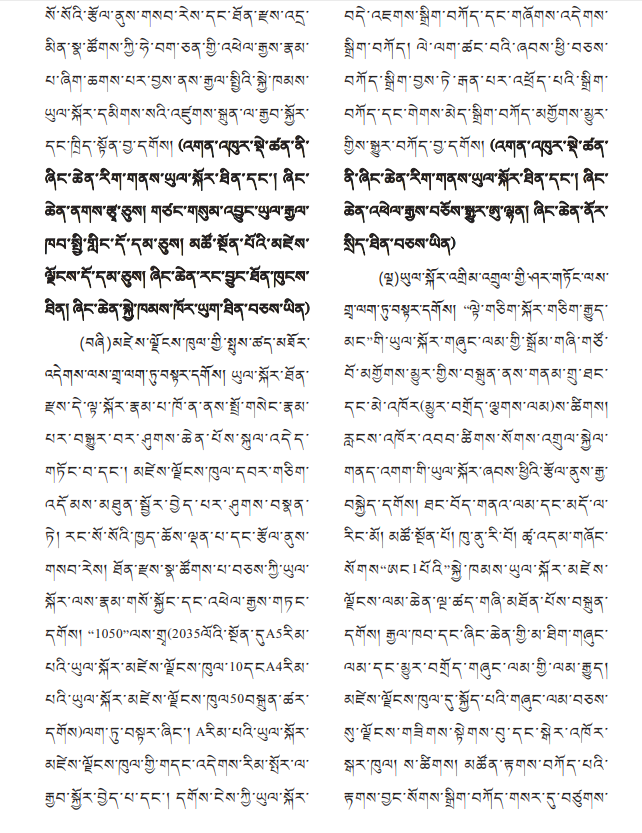 སོ་སོའི་རྩོལ་ནུས་གསབ་རེས་དང་ཐོན་རྫས་འདྲ་
མིན་སྣ་ཚོགས་ཀྱི་ཧེ་བག་ཅན་གྱི་འཕེལ་རྒྱས་རྣམ་
པ་ཞིག་ཆགས་པར་བྱས་ནས་རྒྱལ་སྤྱིའི་སྐྱེ་ཁམས་
ཡུལ་སྐོར་དམིགས་སའི་འཛུགས་སྐྲུན་ལ་རྒྱབ་སྐྱོར་
དང་ཁྲིད་སྟོན་བྱ་དགོས། (འགན་འཁུར་སྡེ་ཚན་ནི་
ཞིང་ཆེན་རིག་གནས་ཡུལ་སྐོར་ཐིན་དང་། ཞིང་
ཆེན་ནགས་རྩྭ་ཅུས། གཙང་གསུམ་འབྱུང་ཡུལ་རྒྱལ་
ཁབ་སྤྱི་གླིང་དོ་དམ་ཅུས། མཚོ་སྔོན་པོའི་མཛེས་
ལྗོངས་དོ་དམ་ཅུས། ཞིང་ཆེན་རང་བྱུང་ཐོན་ཁུངས་
ཐིན། ཞིང་ཆེན་སྐྱེ་ཁམས་ཁོར་ཡུག་ཐིན་བཅས་ཡིན)
(བཞི)མཛེས་ལྗོངས་ཁུལ་གྱི་སྤུས་ཚད་མཐོར་
འདེགས་ལས་གྲྭ་ལག་ཏུ་བསྟར་དགོས། ཡུལ་སྐོར་ཐོན་
རྫས་དེ་ལྟ་སྐོར་རྣམ་པ་ཁོ་ན་ནས་སྤྲོ་གསེང་རྣམ་
པར་བསྒྱུར་བར་ཤུགས་ཆེན་པོས་སྐུལ་འདེད་
གཏོང་བ་དང་། མཛེས་ལྗོངས་ཁུལ་དབར་གཅིག་
འདོམས་མཐུན་སྦྱོར་བྱེད་པར་ཤུགས་བསྣན་
ཏེ། རང་སོ་སོའི་ཁྱད་ཆོས་ལྡན་པ་དང་རྩོལ་ནུས་
གསབ་རེས། ཐོན་རྫས་སྣ་ཚོགས་པ་བཅས་ཀྱི་ཡུལ་
སྐོར་ལས་རྣམ་གསོ་སྐྱོང་དང་འཕེལ་རྒྱས་གཏང་
དགོས། “1050”ལས་གྲྭ(2035ལོའི་སྔོན་དུA5རིམ་
པའི་ཡུལ་སྐོར་མཛེས་ལྗོངས་ཁུལ་10དངA4རིམ་
པའི་ཡུལ་སྐོར་མཛེས་ལྗོངས་ཁུལ50བསྐྲུན་ཚར་
དགོས)ལག་ཏུ་བསྟར་ཞིང་། Aརིམ་པའི་ཡུལ་སྐོར་
མཛེས་ལྗོངས་ཁུལ་གྱི་གདང་འདེགས་རིམ་སྤོར་ལ་
རྒྱབ་སྐྱོར་བྱེད་པ་དང་། དགོས་ངེས་ཀྱི་ཡུལ་སྐོར་
བདེ་འཇགས་སྒྲིག་བཀོད་དང་གཞོགས་འདེགས་
སྒྲིག་བཀོད། ལེ་ལག་ཚང་བའི་ཞབས་ཕྱི་བཅས་
བཀོད་སྒྲིག་བྱས་ཏེ་རྒན་པར་འཕྲོད་པའི་སྒྲིག་
བཀོད་དང་གེགས་མེད་སྒྲིག་བཀོད་མགྱོགས་མྱུར་
གྱིས་སྒྱུར་བཀོད་བྱ་དགོས། (འགན་འཁུར་སྡེ་ཚན་
ནི་ཞིང་ཆེན་རིག་གནས་ཡུལ་སྐོར་ཐིན་དང་། ཞིང་
ཆེན་འཕེལ་རྒྱས་བཅོས་སྒྱུར་ཨུ་ལྷན། ཞིང་ཆེན་ནོར་
སྲིད་ཐིན་བཅས་ཡིན)
(ལྔ)ཡུལ་སྐོར་འགྲིམ་འགྲུལ་གྱི་ཤར་གཏོང་ལས་
གྲྭ་ལག་ཏུ་བསྟར་དགོས། “ལྟེ་གཅིག་སྐོར་གཅིག་རྒྱུད་
མང་”གི་ཡུལ་སྐོར་གཞུང་ལམ་གྱི་སྒྲོམ་གཞི་གཙོ་
བོ་མགྱོགས་མྱུར་གྱིས་བསྐྲུན་ནས་གནམ་གྲུ་ཐང་
དང་མེ་འཁོར(མྱུར་བགྲོད་ལྕགས་ལམ)ས་ཚིགས།
རླངས་འཁོར་འབབ་ཚིགས་སོགས་འགྲུལ་སྐྱེལ་
གནད་འགག་གི་ཡུལ་སྐོར་ཞབས་ཕྱིའི་རྩོལ་ནུས་རྒྱ་
བསྐྱེད་དགོས། ཐང་བོད་གནའ་ལམ་དང་མདོ་ལ་
རིང་མོ། མཚོ་སྔོན་པོ། ཁུ་ནུ་རི་བོ། ཚྭ་འདམ་གཞོང་
སོགས“ཨང1པོའི”སྐྱེ་ཁམས་ཡུལ་སྐོར་མཛེས་
ལྗོངས་ལམ་ཆེན་ལྔ་ཚད་གཞི་མཐོན་པོས་བསྐྲུན་
དགོས། རྒྱལ་ཁབ་དང་ཞིང་ཆེན་གྱི་མ་ཐིག་གཞུང་
ལམ་དང་མྱུར་བགྲོད་གཞུང་ལམ་གྱི་ལམ་རྒྱུད།
མཛེས་ལྗོངས་ཁུལ་དུ་སྐྱོད་པའི་གཞུང་ལམ་བཅས་
སུ་ལྗོངས་གཟིགས་སྟེགས་བུ་དང་སྒེར་འཁོར་
སྒར་ཁུལ། ས་ཚིགས། མཚོན་རྟགས་བཀོད་པའི་
རྟགས་བྱང་སོགས་སྒྲིག་བཀོད་གསར་དུ་བཙུགས་